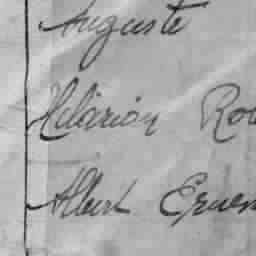 Auguste
Hilarion Rou
Albert Ernes